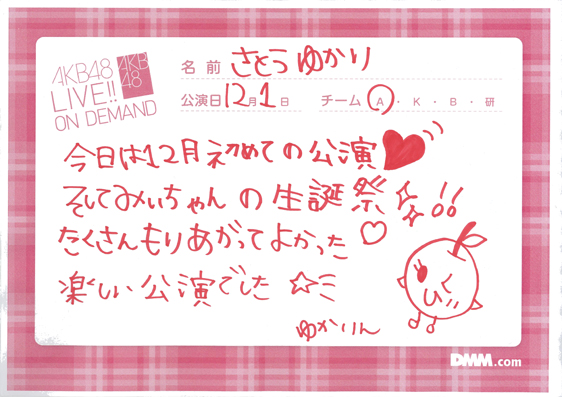 AKB48
LIVE!!
ON DEMAND
AKB
48
名前 さとうゆかり
公演日 12月1日 チーム A・K・B・研
今日は12月初めての公演
そしてみぃちゃんの生誕祭!!
たくさんもりあがってよかった
楽しい公演でした
ゆかりん
DMM.com